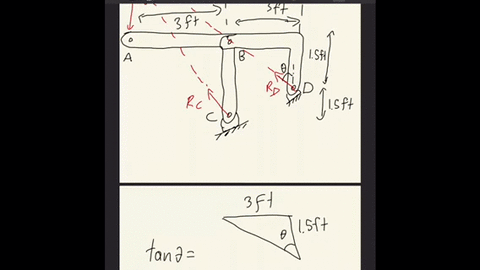 3ft
3ft
A
B
1.5ft
θ
D
R_D
R_C
C
1.5ft
3ft
1.5ft
θ
tanθ=